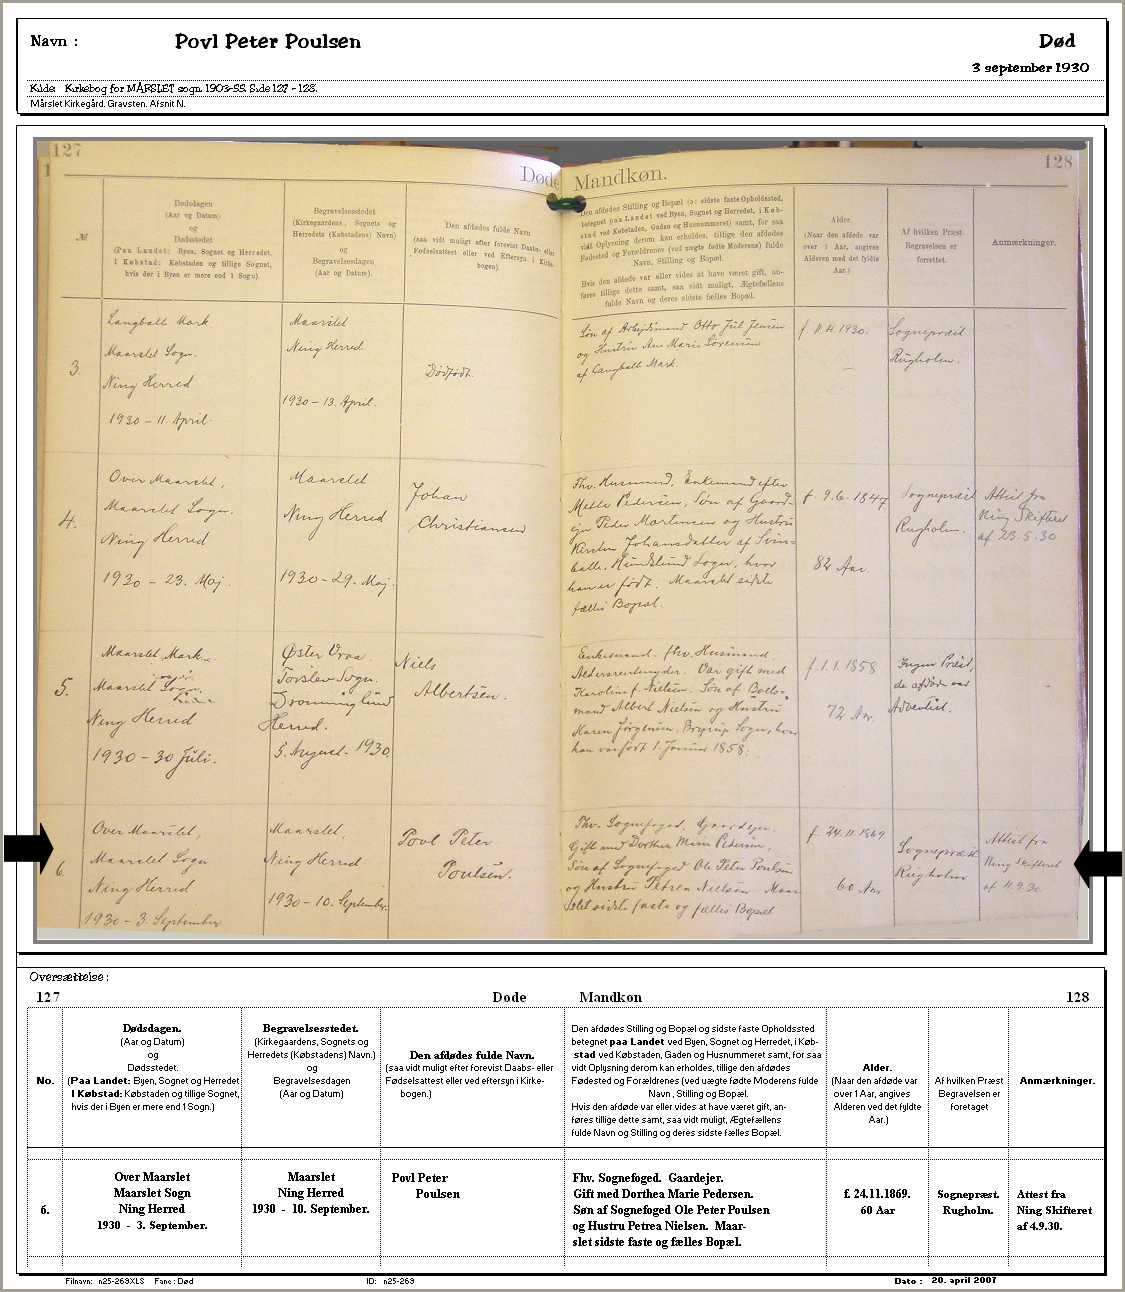 Navn :
Povl Peter Poulsen
Død
3 september 1930
Kilde: Kirkebog for MÅRSLET sogn. 1903-55. Side 127 - 128.
Mårslet Kirkegård. Gravsten. Afsnit N.
127
Døde
Mandkøn.
128
№
Dødsdagen
(Aar og Datum)
og
Dødsstedet
(Paa Landet: Byen, Sognet og Herredet.
I Købstad: Købstaden og tillige Sognet,
hvis der i Byen er mere end 1 Sogn).
Begravelsesstedet
(Kirkegaardens, Sognets og
Herredets (Købstadens) Navn)
og
Begravelsesdagen
(Aar og Datum).
Den afdødes fulde Navn
(saa vidt muligt efter forevist Daabs- eller
Fødselsattest eller ved Eftersyn i Kirke-
bogen).
Den afdødes Stilling og Bopæl (o: sidste faste Opholdssted,
betegnet paa Landet ved Byen, Sognet og Herredet, i Køb-
stad ved Købstaden, Gaden og Husnummeret) samt, for saa
vidt Oplysning derom kan erholdes, tillige den afdødes
Fødested og Forældrene (ved uægte fødte Moderens) fulde
Navn, Stilling og Bopæl.
Hvis den afdøde var eller vides at have været gift, an-
føres tillige dette samt, saa vidt muligt, Ægtefællens
fulde Navn og deres sidste fælles Bopæl.
Alder.
(Naar den afdøde var
over 1 Aar, angives
Alderen med det fyldte
Aar.)
Af hvilken Præst
Begravelsen er
forrettet.
Anmærkninger.
3.
Langballe Mark
Maarslet Sogn.
Ning Herred
1930 - 11. April.
Maarslet
Ning Herred
1930 - 13. April.
Dødfødt.
Søn af Arbejdsmand Otto Juul Jensen
og Hustru Ane Marie Sørensen
af Langballe Mark.
f. 11.4.1930.
Sognepræst
Rugholm.
4.
Over Maarslet,
Maarslet Sogn.
Ning Herred
1930 - 23. Maj.
Maarslet
Ning Herred
1930 - 29. Maj.
Johan
Christiansen
Fhv. Husmand, Enkemand efter
Mette Pedersen, Søn af Gaard-
ejer Peder Mortensen og Hustru
Kirsten Johansdatter af Svin-
balle, Hundslund Sogn, hvor
han er født. Maarslet sidste
fælles Bopæl.
f. 9.6.1847
82 Aar.
Sognepræst
Rugholm.
Attest fra
Ning Skifteret
af 23.5.30
5.
Maarslet Mark
Maarslet Sogn.
Ning Herred
1930 - 30 Juli.
Øster Vraa
Torslev Sogn.
Dronninglund
Herred.
5. August. 1930.
Niels
Albertsen.
Enkemand. fhv. Husmand.
Aldersrentenyder. Var gift med
Karoline f. Nielsen. Søn af Boels-
mand Albert Nielsen og Hustru
Karen Jørgensen, Sogn, hvor
han var født 1. Januar 1858.
f. 1.1.1858
72 Aar.
Ingen Præst,
da afdøde var
Adventist.
6.
Over Maarslet,
Maarslet Sogn
Ning Herred
1930 - 3. September
Maarslet,
Ning Herred
1930 - 10. September.
Povl Peter
Poulsen.
Fhv. Sognefoged. Gaardejer.
Gift med Dorthea Marie Pedersen,
Søn af Sognefoged Ole Peter Poulsen
og Hustru Petrea Nielsen Maar
slet sidste faste og fælles Bopæl
f. 24.11.1869
60 Aar
Sognepræst
Rugholm
Attest fra
Ning Skifteret
af 4.9.30.
Oversættelse :
127
Dode
Mandkøn
128
No.
Dødsdagen.
(Aar og Datum)
og
Dødsstedet.
(Paa Landet: Byen, Sognet og Herredet
I Købstad: Købstaden og tillige Sognet,
hvis der i Byen er mere end 1 Sogn.)
Begravelsesstedet.
(Kirkegaardens, Sognets og
Herredets (Købstadens) Navn.)
og
Begravelsesdagen
(Aar og Datum)
Den afdødes fulde Navn.
(saa vidt muligt efter forevist Daabs- eller
Fødselsattest eller ved eftersyn i Kirke-
bogen.)
Den afdødes Stilling og Bopæl og sidste faste Opholdssted
betegnet paa Landet ved Byen, Sognet og Herredet, i Køb-
stad ved Købstaden, Gaden og Husnummeret samt, for saa
vidt Oplysning derom kan erholdes, tillige den afdødes
Fødested og Forældrene (ved uægte fødte Moderens fulde
Navn , Stilling og Bopæl.
Hvis den afdøde var eller vides at have været gift, an-
føres tillige dette samt, saa vidt muligt, Ægtefællens
fulde Navn og Stilling og deres sidste fælles Bopæl.
Alder.
(Naar den afdøde var
over 1 Aar, angives
Alderen ved det fyldte
Aar.)
Af hvilken Præst
Begravelsen er
foretaget
Anmærkninger.
6.
Over Maarslet
Maarslet Sogn
Ning Herred
1930 - 3. September.
Maarslet
Ning Herred
1930 - 10. September.
Povl Peter
Poulsen
Fhv. Sognefoged. Gaardejer.
Gift med Dorthea Marie Pedersen.
Søn af Sognefoged Ole Peter Poulsen
og Hustru Petrea Nielsen. Maar-
slet sidste faste og fælles Bopæl.
f. 24.11.1869.
60 Aar
Sognepræst.
Rugholm.
Attest fra
Ning Skifteret
af 4.9.30.
Filnavn: n25-269XLS Fane : Død
ID: n25-269
Dato : 20. april 2007